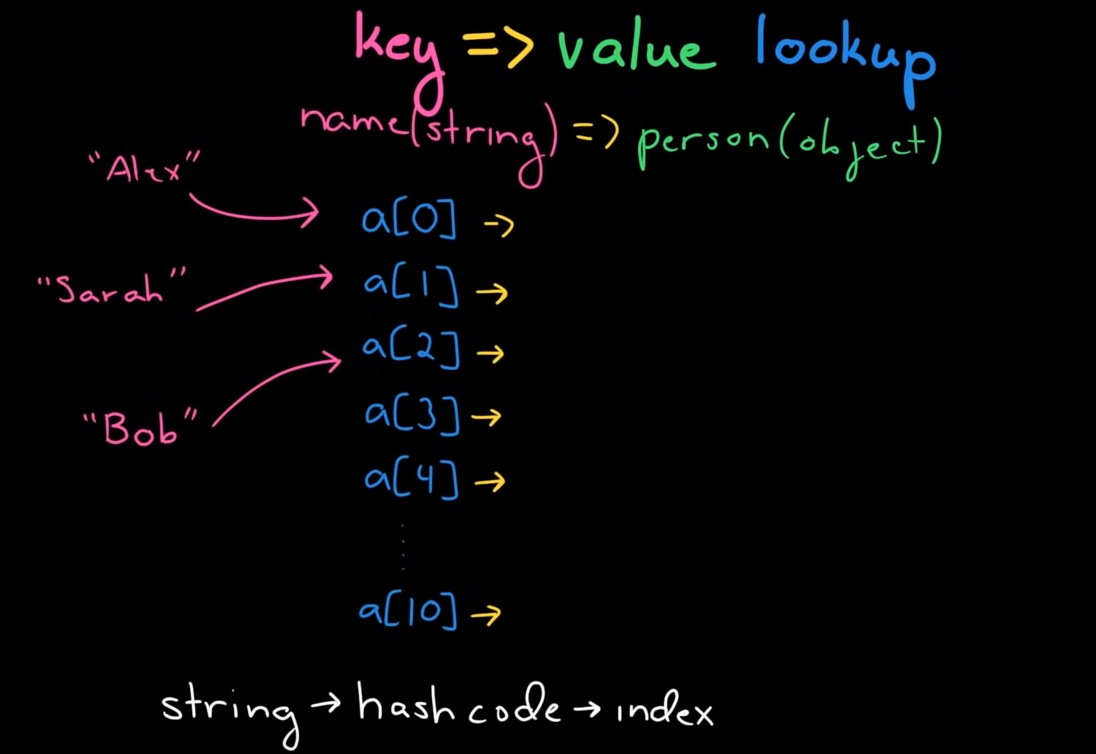 key => value lookup
name(string) => person(object)
"Alex"
a[0] ->
"Sarah"
a[1] →
a[2] →
"Bob"
a[3] →
a[4] →
a[10] →
string → hash code → index